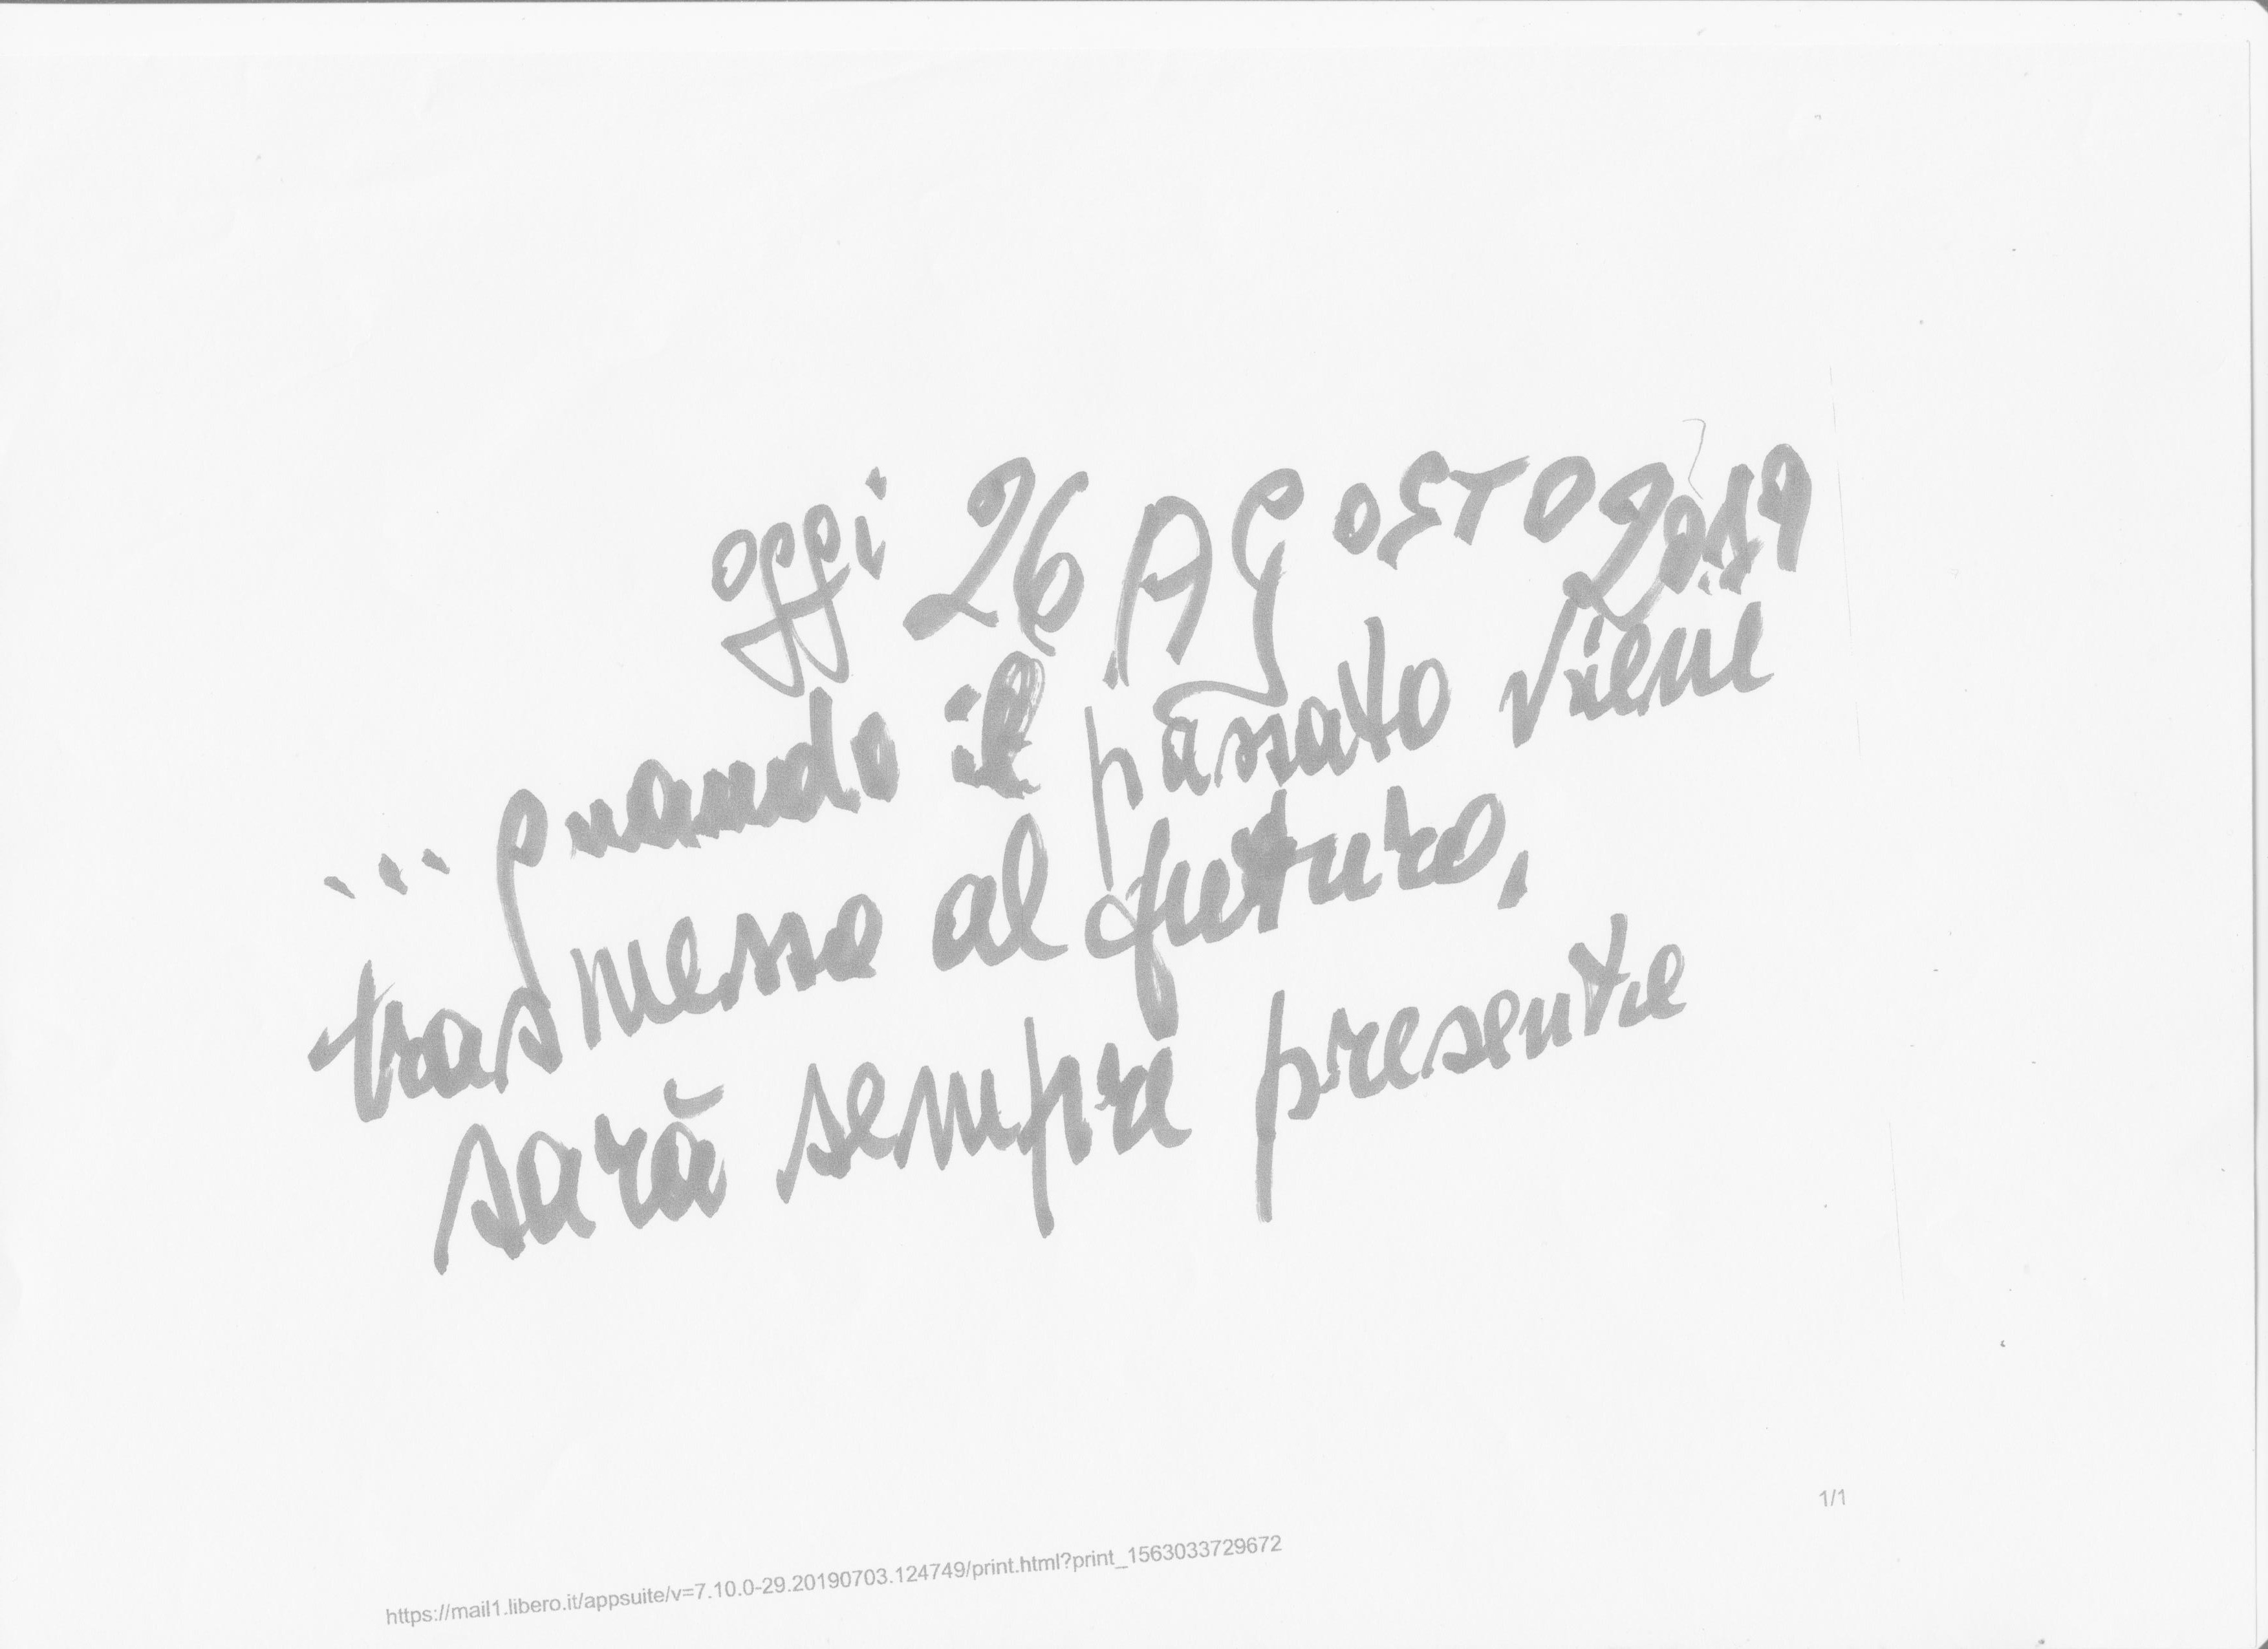 oggi 26 AGOSTO 2019
... quando il passato viene
trasmesso al futuro,
sarà sempre presente
1/1
https://mail1.libero.it/appsuite/v=7.10.0-29.20190703.124749/print.html?print_1563033729672